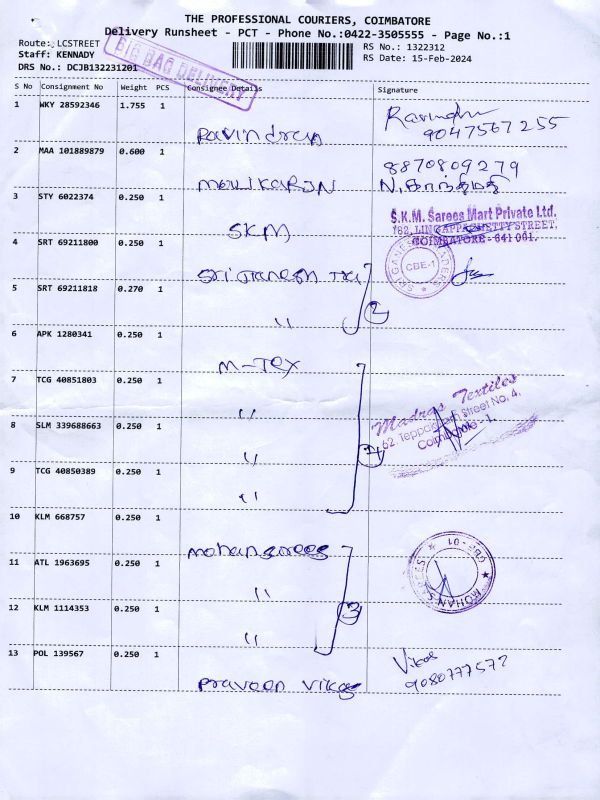 THE PROFESSIONAL COURIERS, COIMBATORE
Delivery Runsheet - PCT - Phone No.:0422-3505555 - Page No.:1
Route: LCSTREET
Staff: KENNADY
DRS No.: DCJB132231201
BIG BAG DELIVERY
RS No.: 1322312
RS Date: 15-Feb-2024
S No Consignment No Weight PCS Consignee Details Signature
1 WKY 28592346 1.755 1 Ravindran Ravindran
9047567255
2 MAA 101889879 0.600 1 8870809279
3 STY 6022374 0.250 1 SKM S.K.M. Sarees Mart Private Ltd.
182, LINGAPPA CHETTY STREET,
COIMBATORE - 641 001.
4 SRT 69211800 0.250 1 Sri Ganesh Tex SRI GANESH CBE-1
5 SRT 69211818 0.270 1 " 2
6 APK 1280341 0.250 1 M-Tex
7 TCG 40851803 0.250 1 " Madras Textiles
8 SLM 339688663 0.250 1 " 62 Street No. 4,
Coimbatore - 1.
9 TCG 40850389 0.250 1 "
10 KLM 668757 0.250 1 Mohan Sarees
11 ATL 1963695 0.250 1 " MOHAN SAREES ★ CBE-01 ★
12 KLM 1114353 0.250 1 " 3
13 POL 139567 0.250 1 Praveen Vikas Vikas
9080777572